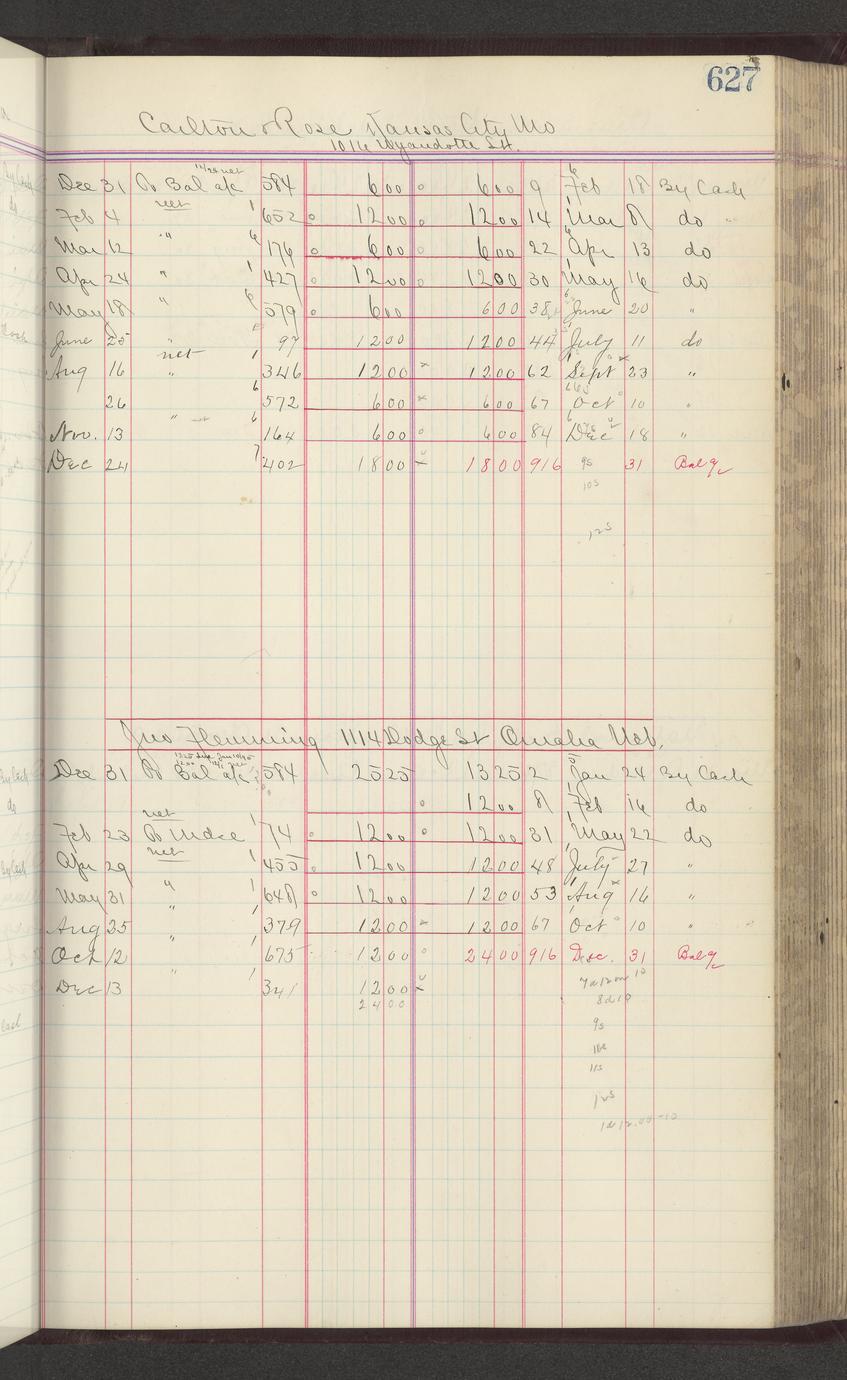 627
Carlton & Rose Kansas City Mo
1016 Wyandotte St.
Dec 31 To Bal a/c 584 6 00 6 00 9 Feb 18 By Cash
Feb 4 net 1 652 12 00 12 00 14 Mar 8 do
Mar 12 " 6 176 6 00 6 00 22 Apr 13 do
Apr 24 " 1 427 12 00 12 00 30 May 16 do
May 18 " 6 579 6 00 6 00 38 June 20 "
June 25 " 97 12 00 12 00 44 July 11 do
Aug 16 net " 1 346 12 00 12 00 62 Sept 23 "
26 6 572 6 00 6 00 67 Oct 10 "
Nov. 13 " 6 164 6 00 6 00 84 Dec 18 "
Dec 24 7 402 18 00 18 00 916 9s 31 Bal
10s
12s
Jno Flemming 1114 Dodge St Omaha Neb.
Dec 31 To Bal a/c 584 25 25 13 25 2 Jan 24 By Cash
12 00 8 Feb 16 do
net
Feb 23 To Mdse 74 12 00 12 00 31 May 22 do
Apr 29 net 1 455 12 00 12 00 48 July 27 "
May 31 " 1 648 12 00 12 00 53 Aug 16 "
Aug 25 " 1 379 12 00 12 00 67 Oct 10 "
Oct 12 " 1 675 12 00 24 00 916 Dec. 31 Bal
Dec 13 " 1 341 12 00
24 00
9s
11s
12s